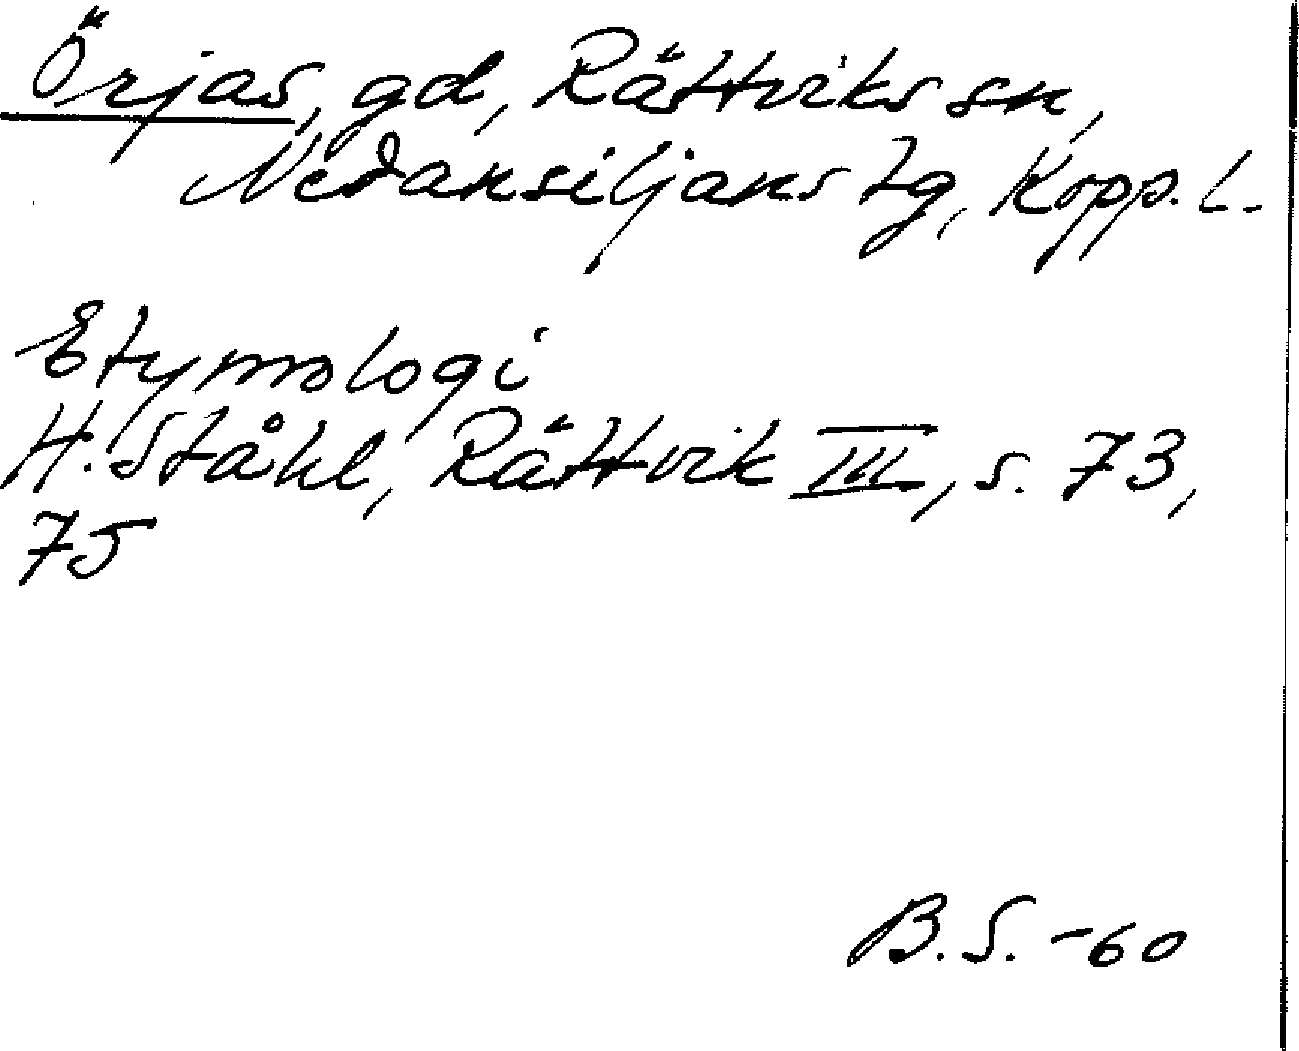 Örjas, gd, Rättviks sn,
Nedansiljans tg, Kopp. l.
Etymologi
H. Ståhl, Rättvik III, s. 73,
75
B.S. -60